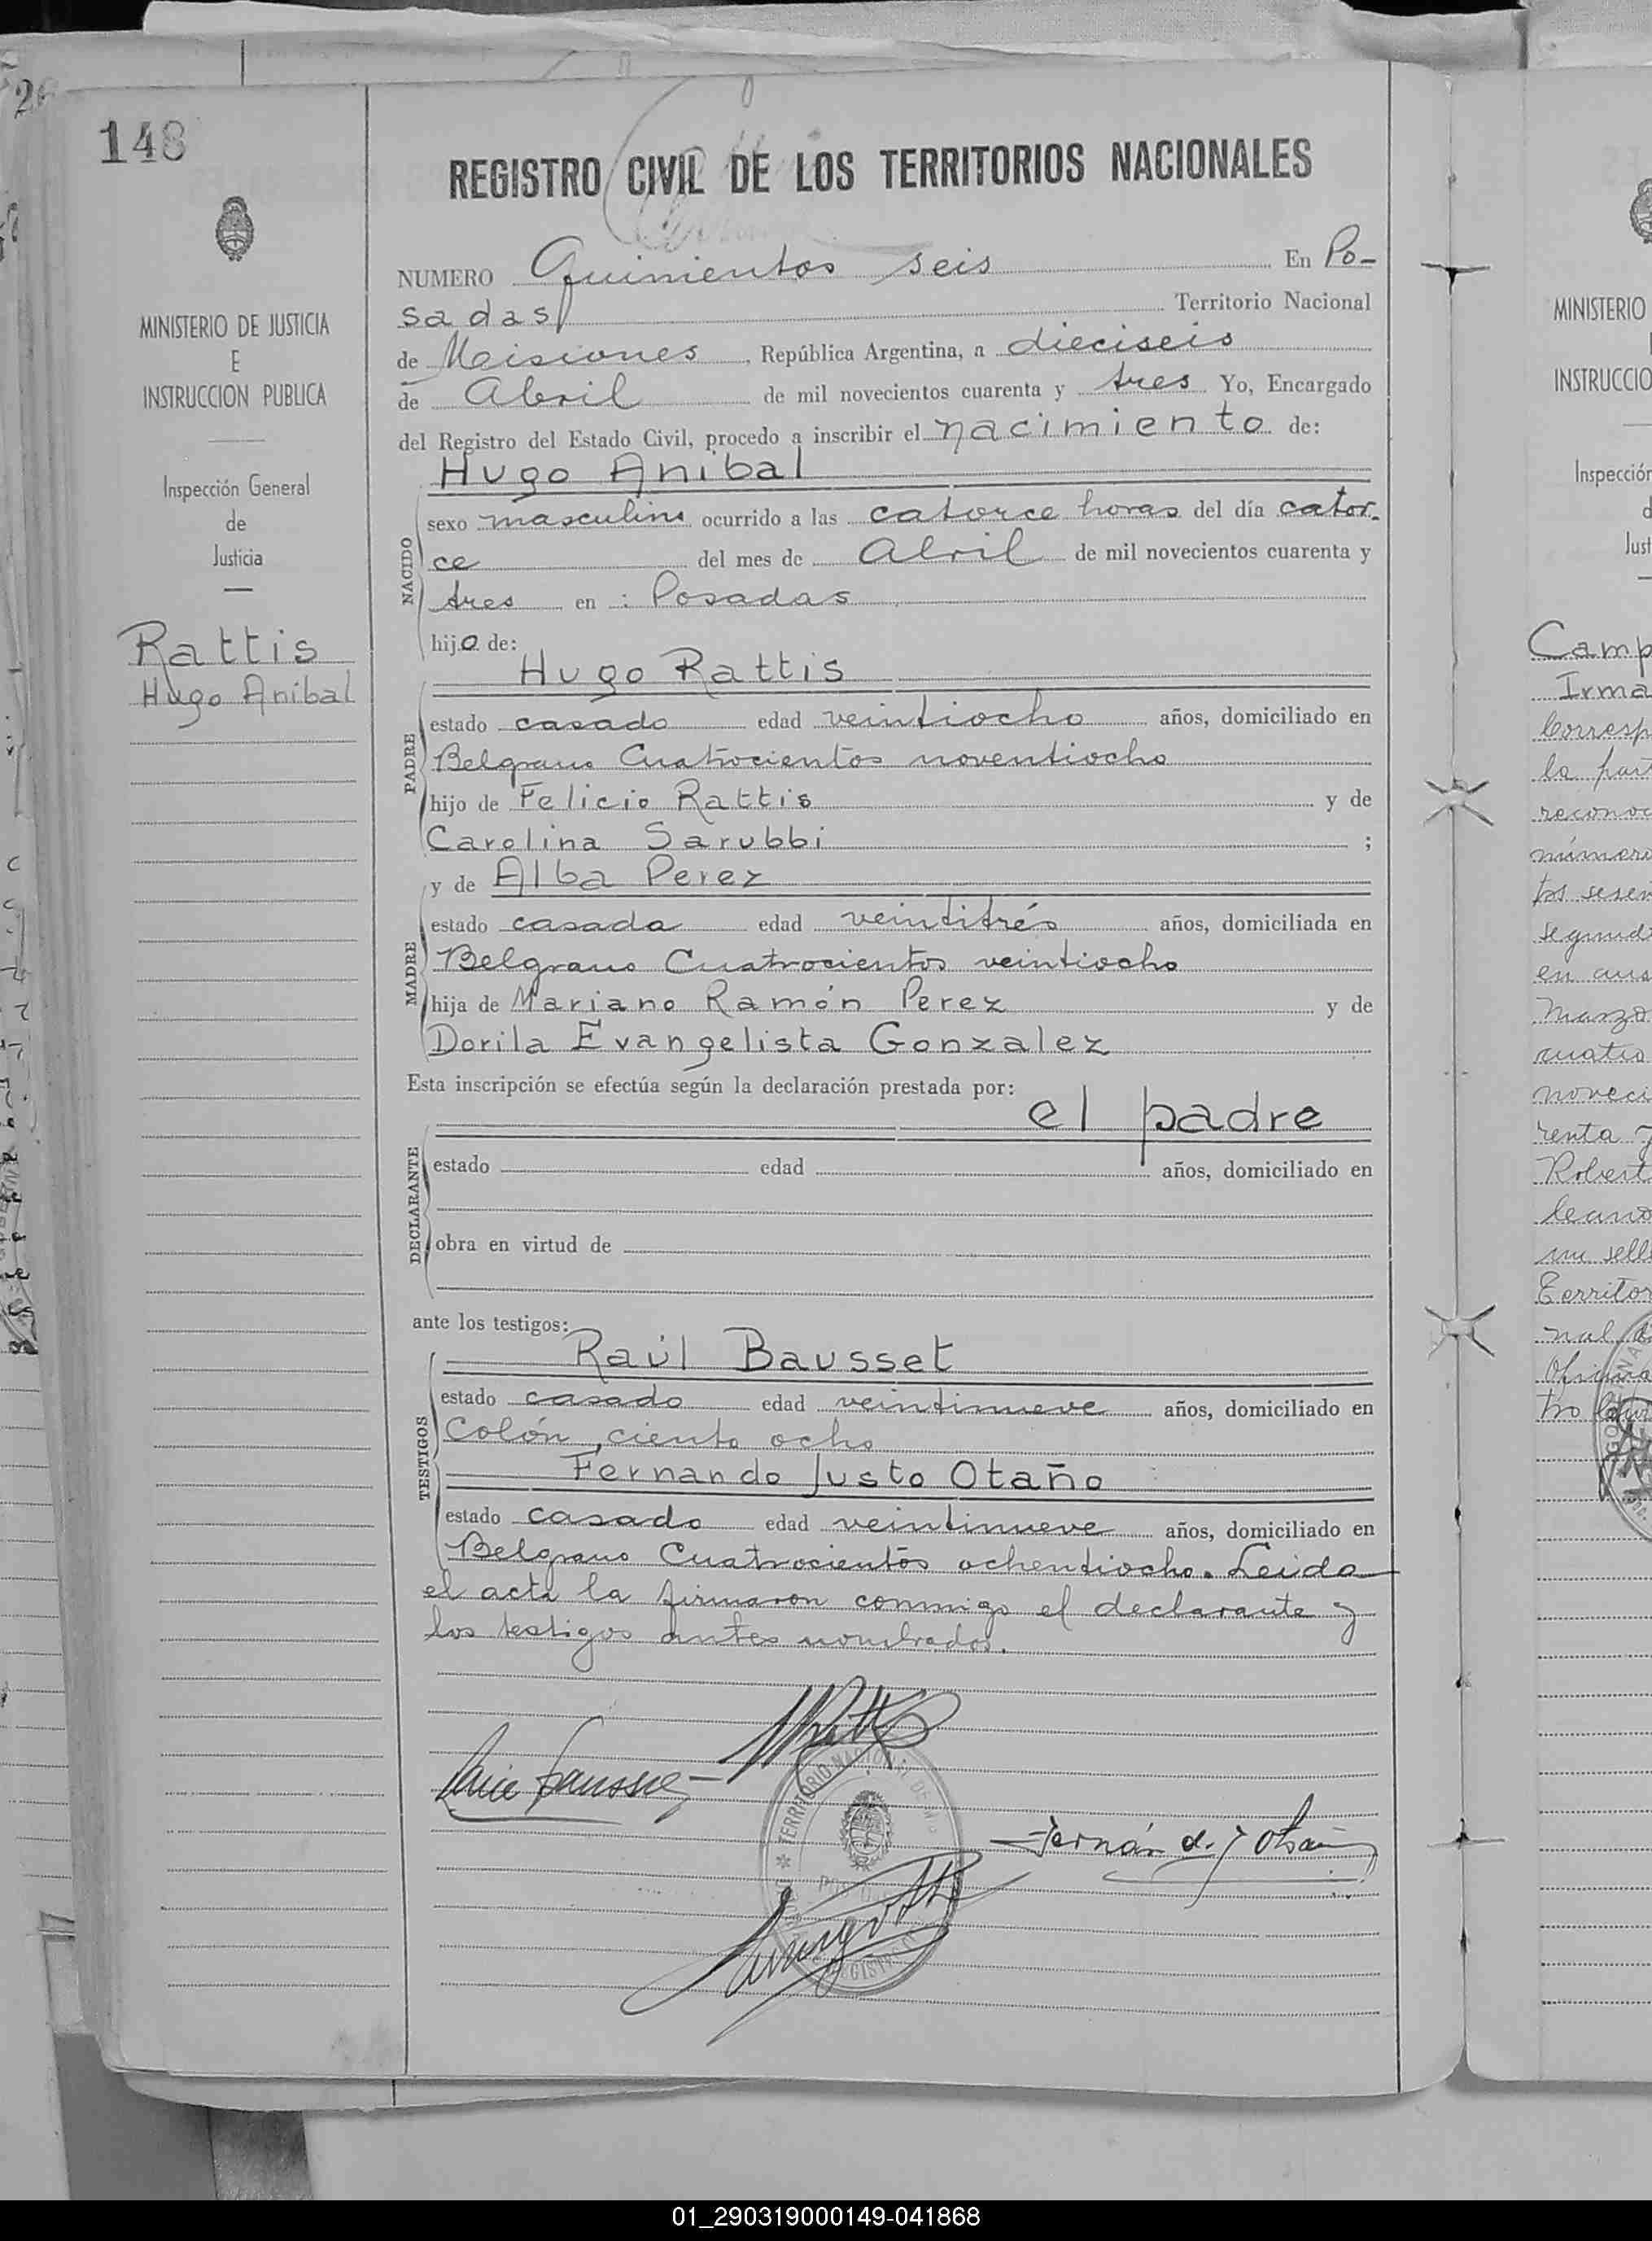 148
REGISTRO CIVIL DE LOS TERRITORIOS NACIONALES
MINISTERIO DE JUSTICIA
E
INSTRUCCION PUBLICA
Inspección General
de
Justicia
Rattis
Hugo Anibal
NUMERO Quinientos seis En Po-
sadas Territorio Nacional
de Misiones, República Argentina, a dieciseis
de Abril de mil novecientos cuarenta y tres Yo, Encargado
del Registro del Estado Civil, procedo a inscribir el nacimiento de:
Hugo Anibal
NACIDO
sexo masculino ocurrido a las catorce horas del día cator-
ce del mes de Abril de mil novecientos cuarenta y
tres en : Posadas
hijo de:
Hugo Rattis
PADRE
estado casado edad veintiocho años, domiciliado en
Belgrano Cuatrocientos noventiocho
hijo de Felicio Rattis y de
Carolina Sarubbi ;
y de Alba Perez
MADRE
estado casada edad veintitrés años, domiciliada en
Belgrano Cuatrocientos veintiocho
hija de Mariano Ramón Perez y de
Dorila Evangelista Gonzalez
Esta inscripción se efectúa según la declaración prestada por:
el padre
DECLARANTE
estado edad años, domiciliado en
obra en virtud de
ante los testigos:
Raúl Bausset
TESTIGOS
estado casado edad veintinueve años, domiciliado en
Colón, ciento ocho
Fernando Justo Otaño
estado casado edad veintinueve años, domiciliado en
Belgrano Cuatrocientos ochentiocho. Leida
el acta la firmaron conmigo el declarante y
los testigos antes nombrados.
TERRITORIO NACIONAL DE
MINISTERIO
INSTRUCCIO
Inspección
d
Just
Camp
Irma
Corresp
la part
reconoc
número
tos sesen
segund
en cua
Marzo
cuatro
noveci
renta y
Robert
leano
mi sell
Territor
nal d
Oficina
tro Civi
01_290319000149-041868